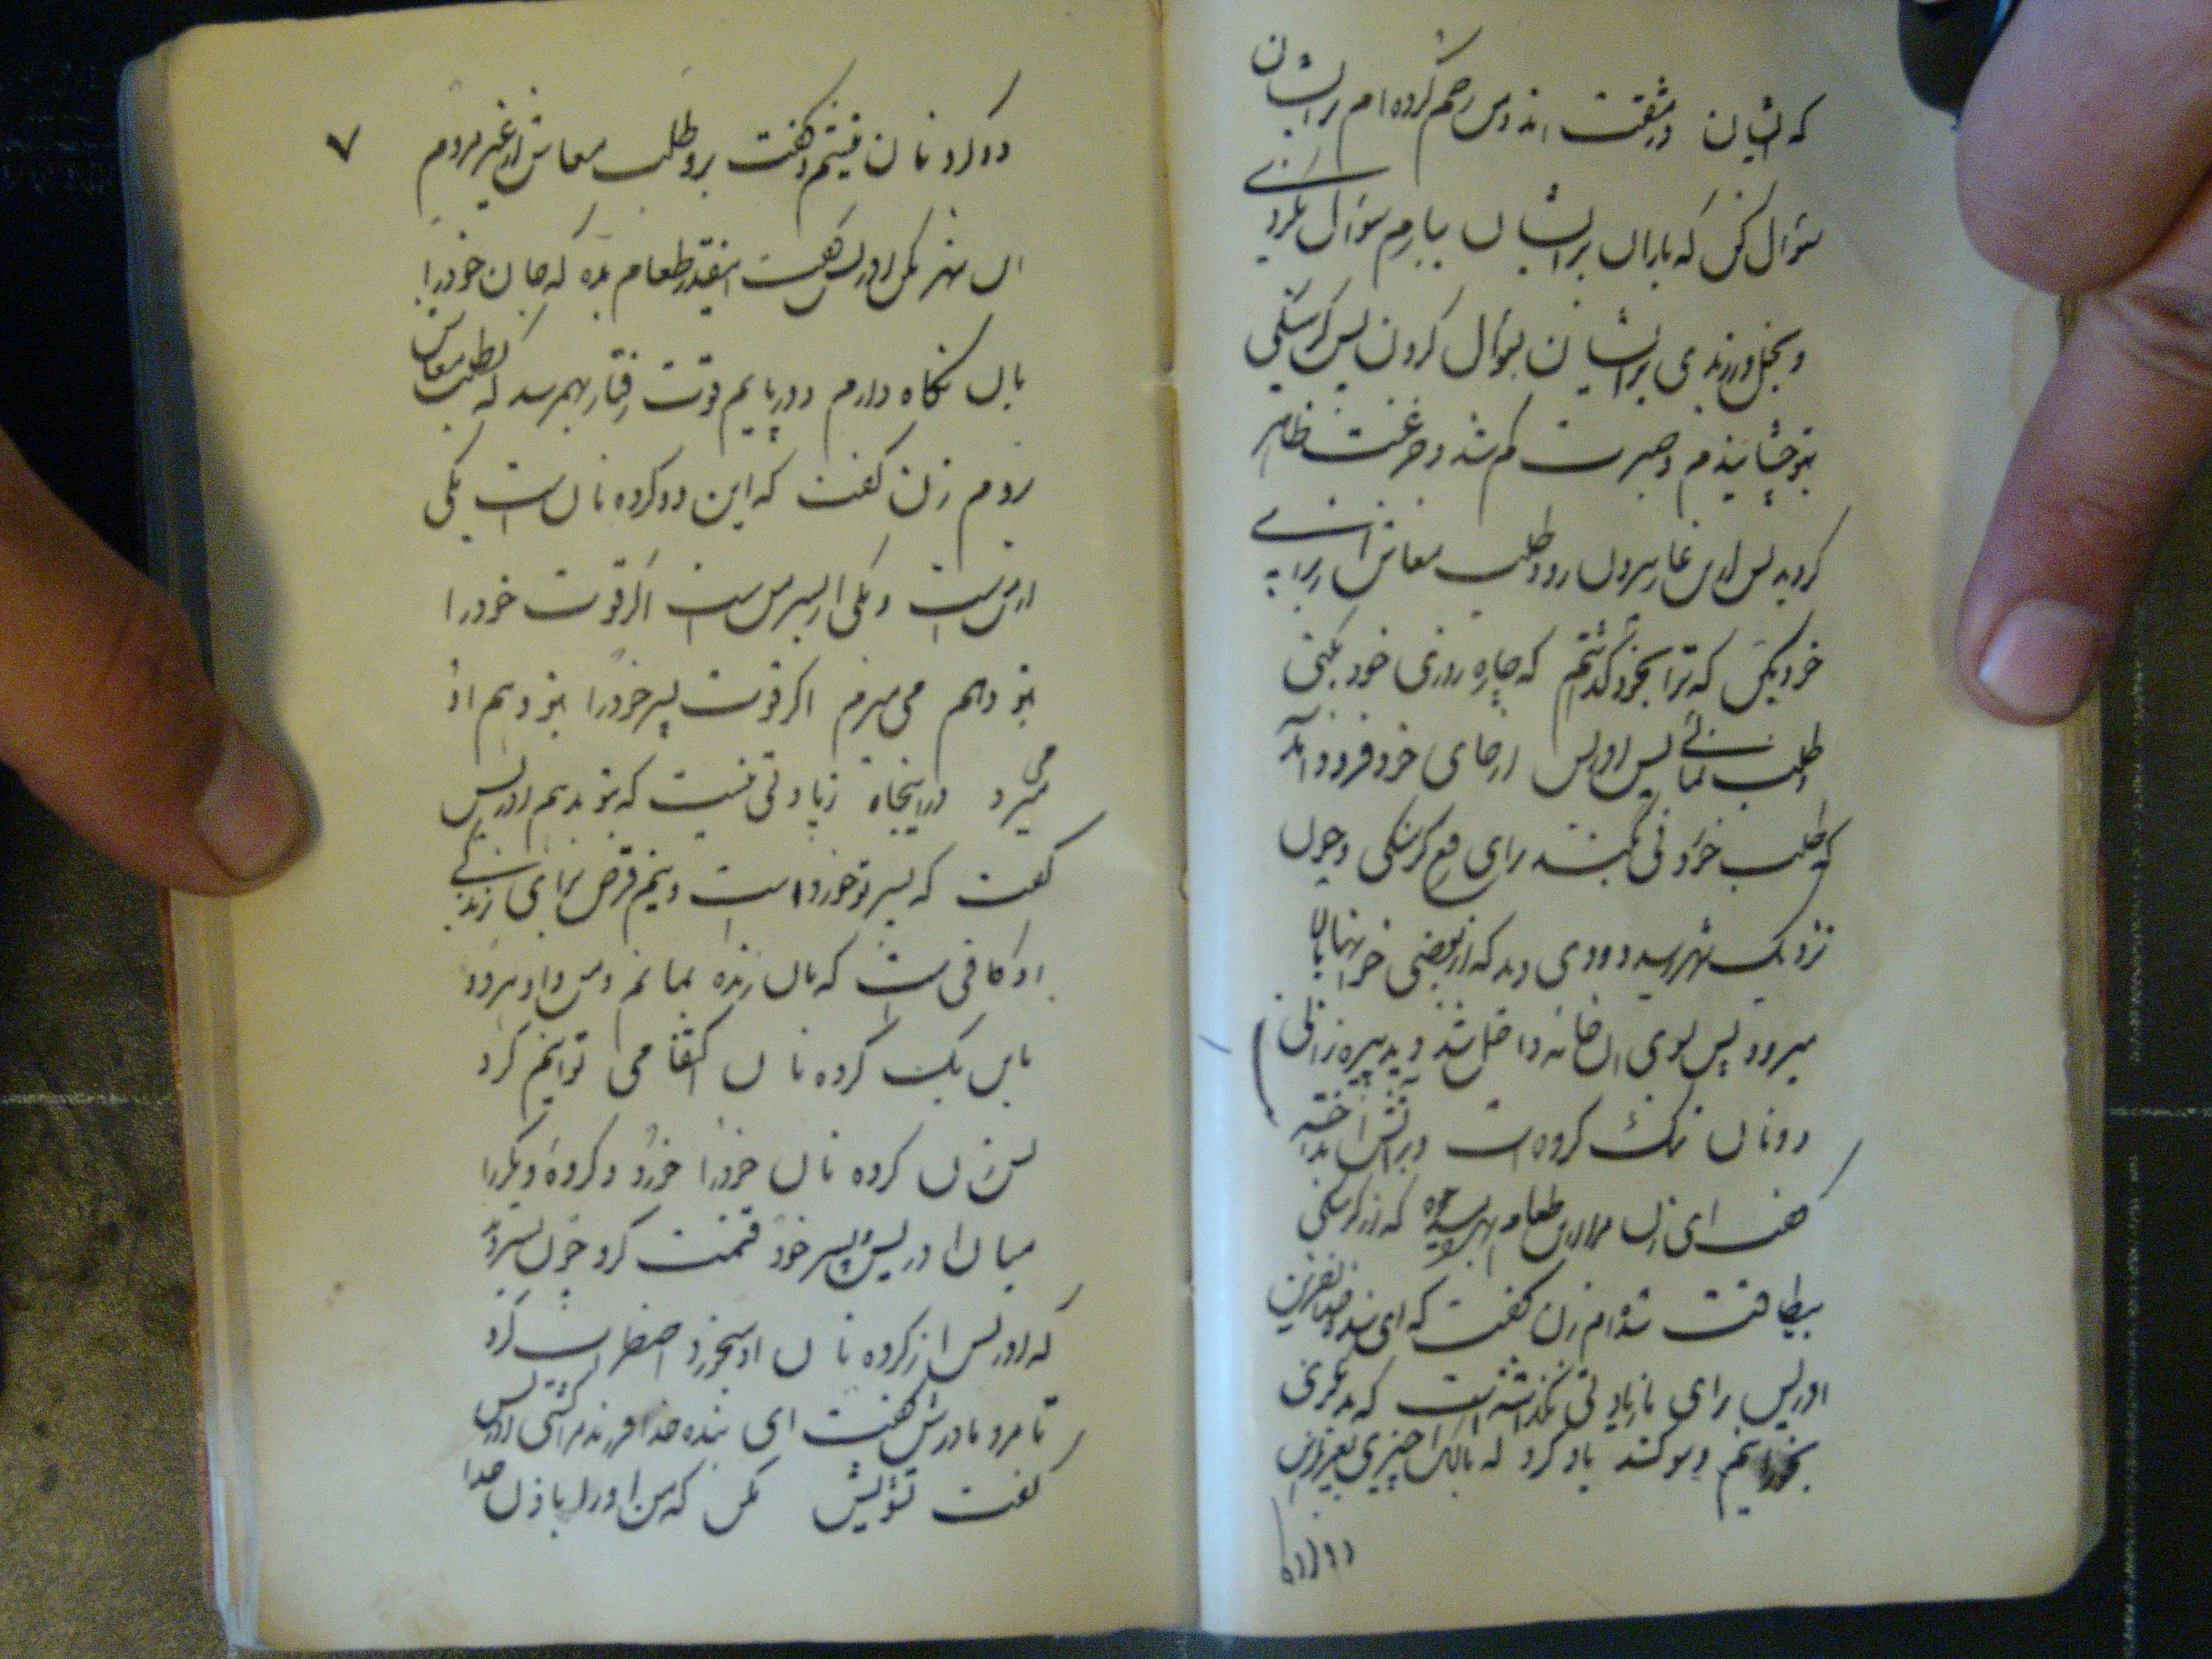 که ایشان در مشقت اند و من رحم کرده ام بر ایشان
سؤال کن که باران بر ایشان ببارم سؤال نکردی
و بخل ورزیدی بر ایشان بسؤال کردن پس گرسنگی
بتو چشانیدم و صبرت کم شد و جزعت ظاهر
گردید پس ازین غار بیرون رو و طلب معاش از برای
خود بکن که ترا بخود گذاشتم که چاره روزی خود بکنی
و طلب نمائی پس ادریس از جای خود فرود آمد
که طلب خوردنی بکند برای رفع گرسنگی و چون
نزدیک شهر رسید دودی دید که از بعضی خانها بالا
میرود پس بسوی ان خانه داخل شد دید پیره زالی
دو نان تنک کرده است و بر آتش انداخته
گفت ای زن مرا طعام بده که از گرسنگی
بیطاقت شده ام زن گفت که ای بنده خدا نفرین
ادریس برای ما زیادتی نگذاشته است که بدیگری
بخورانیم و سوگند یاد کرد که مالک چیزی بغیر ازین
دو کرده
۷
دو کرده نان نیستم و گفت برو طلب معاش از غیر مردم
این شهر بکن ادریس گفت اینقدر طعام بده که جان خود را
بان نگاه دارم و در پایم قوت رفتار بهم رسد که بطلب معاش
بروم زن گفت که این دو کرده نان است یکی
از من است و یکی از پسر من است اگر قوت خود را
بتو دهم می میرم اگر قوت پسر خود را بتو دهم او
می میرد و در اینجا زیادتی نیست که بتو بدهم ادریس
گفت که پسر تو خورد است و نیم قرص برای زندگی
او کافی است که بان زنده بماند و من و او هر دو
باین یک کرده نان اکتفا می توانیم کرد
پس زن کرده نان خود را خورد و کرده دیگر را
میان ادریس و پسر خود قسمت کرد چون پسر دید
که ادریس از کرده نان او میخورد اضطراب کرد
تا مرد مادرش گفت ای بنده خدا فرزند مرا کشتی ادریس
گفت تشویش مکن که من او را باذن خدا